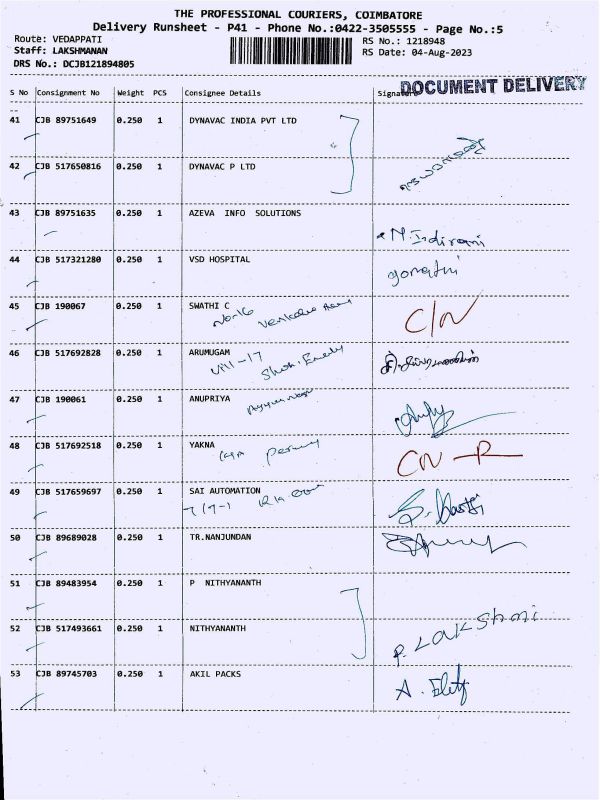 THE PROFESSIONAL COURIERS, COIMBATORE
Delivery Runsheet - P41 - Phone No.:0422-3505555 - Page No.:5
Route: VEDAPPATI
RS No.: 1218948
Staff: LAKSHMANAN
RS Date: 04-Aug-2023
DRS No.: DCJB121894805
DOCUMENT DELIVERY
S No Consignment No Weight PCS Consignee Details Signature
41 CJB 89751649 0.250 1 DYNAVAC INDIA PVT LTD
42 CJB 517650816 0.250 1 DYNAVAC P LTD
43 CJB 89751635 0.250 1 AZEVA INFO SOLUTIONS
M. Indirani
44 CJB 517321280 0.250 1 VSD HOSPITAL
gomathi
45 CJB 190067 0.250 1 SWATHI C
No-16
C/N
46 CJB 517692828 0.250 1 ARUMUGAM
Vill-17
47 CJB 190061 0.250 1 ANUPRIYA
48 CJB 517692518 0.250 1 YAKNA
CN-R
49 CJB 517659697 0.250 1 SAI AUTOMATION
50 CJB 89689028 0.250 1 TR.NANJUNDAN
51 CJB 89483954 0.250 1 P NITHYANANTH
52 CJB 517493661 0.250 1 NITHYANANTH
P. Lakshmi
53 CJB 89745703 0.250 1 AKIL PACKS
A.